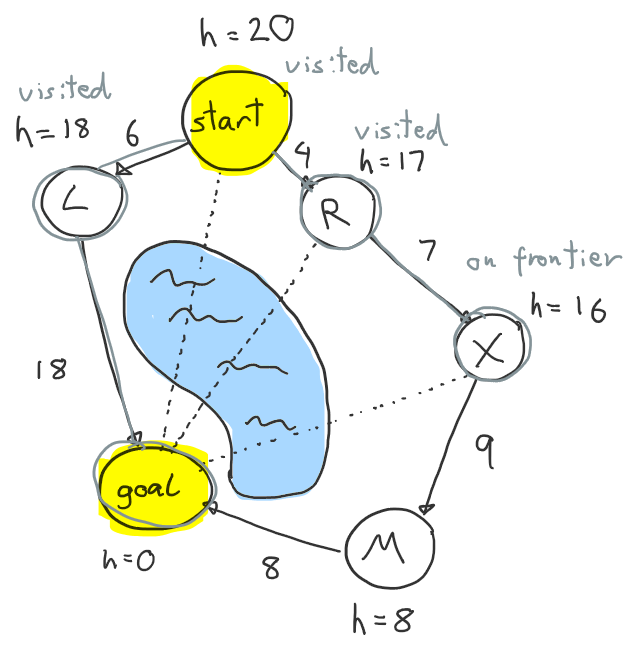 h = 20
visited
start
visited
h = 18
6
4
visited
h = 17
L
R
7
on frontier
h = 16
X
18
9
goal
M
h = 0
8
h = 8